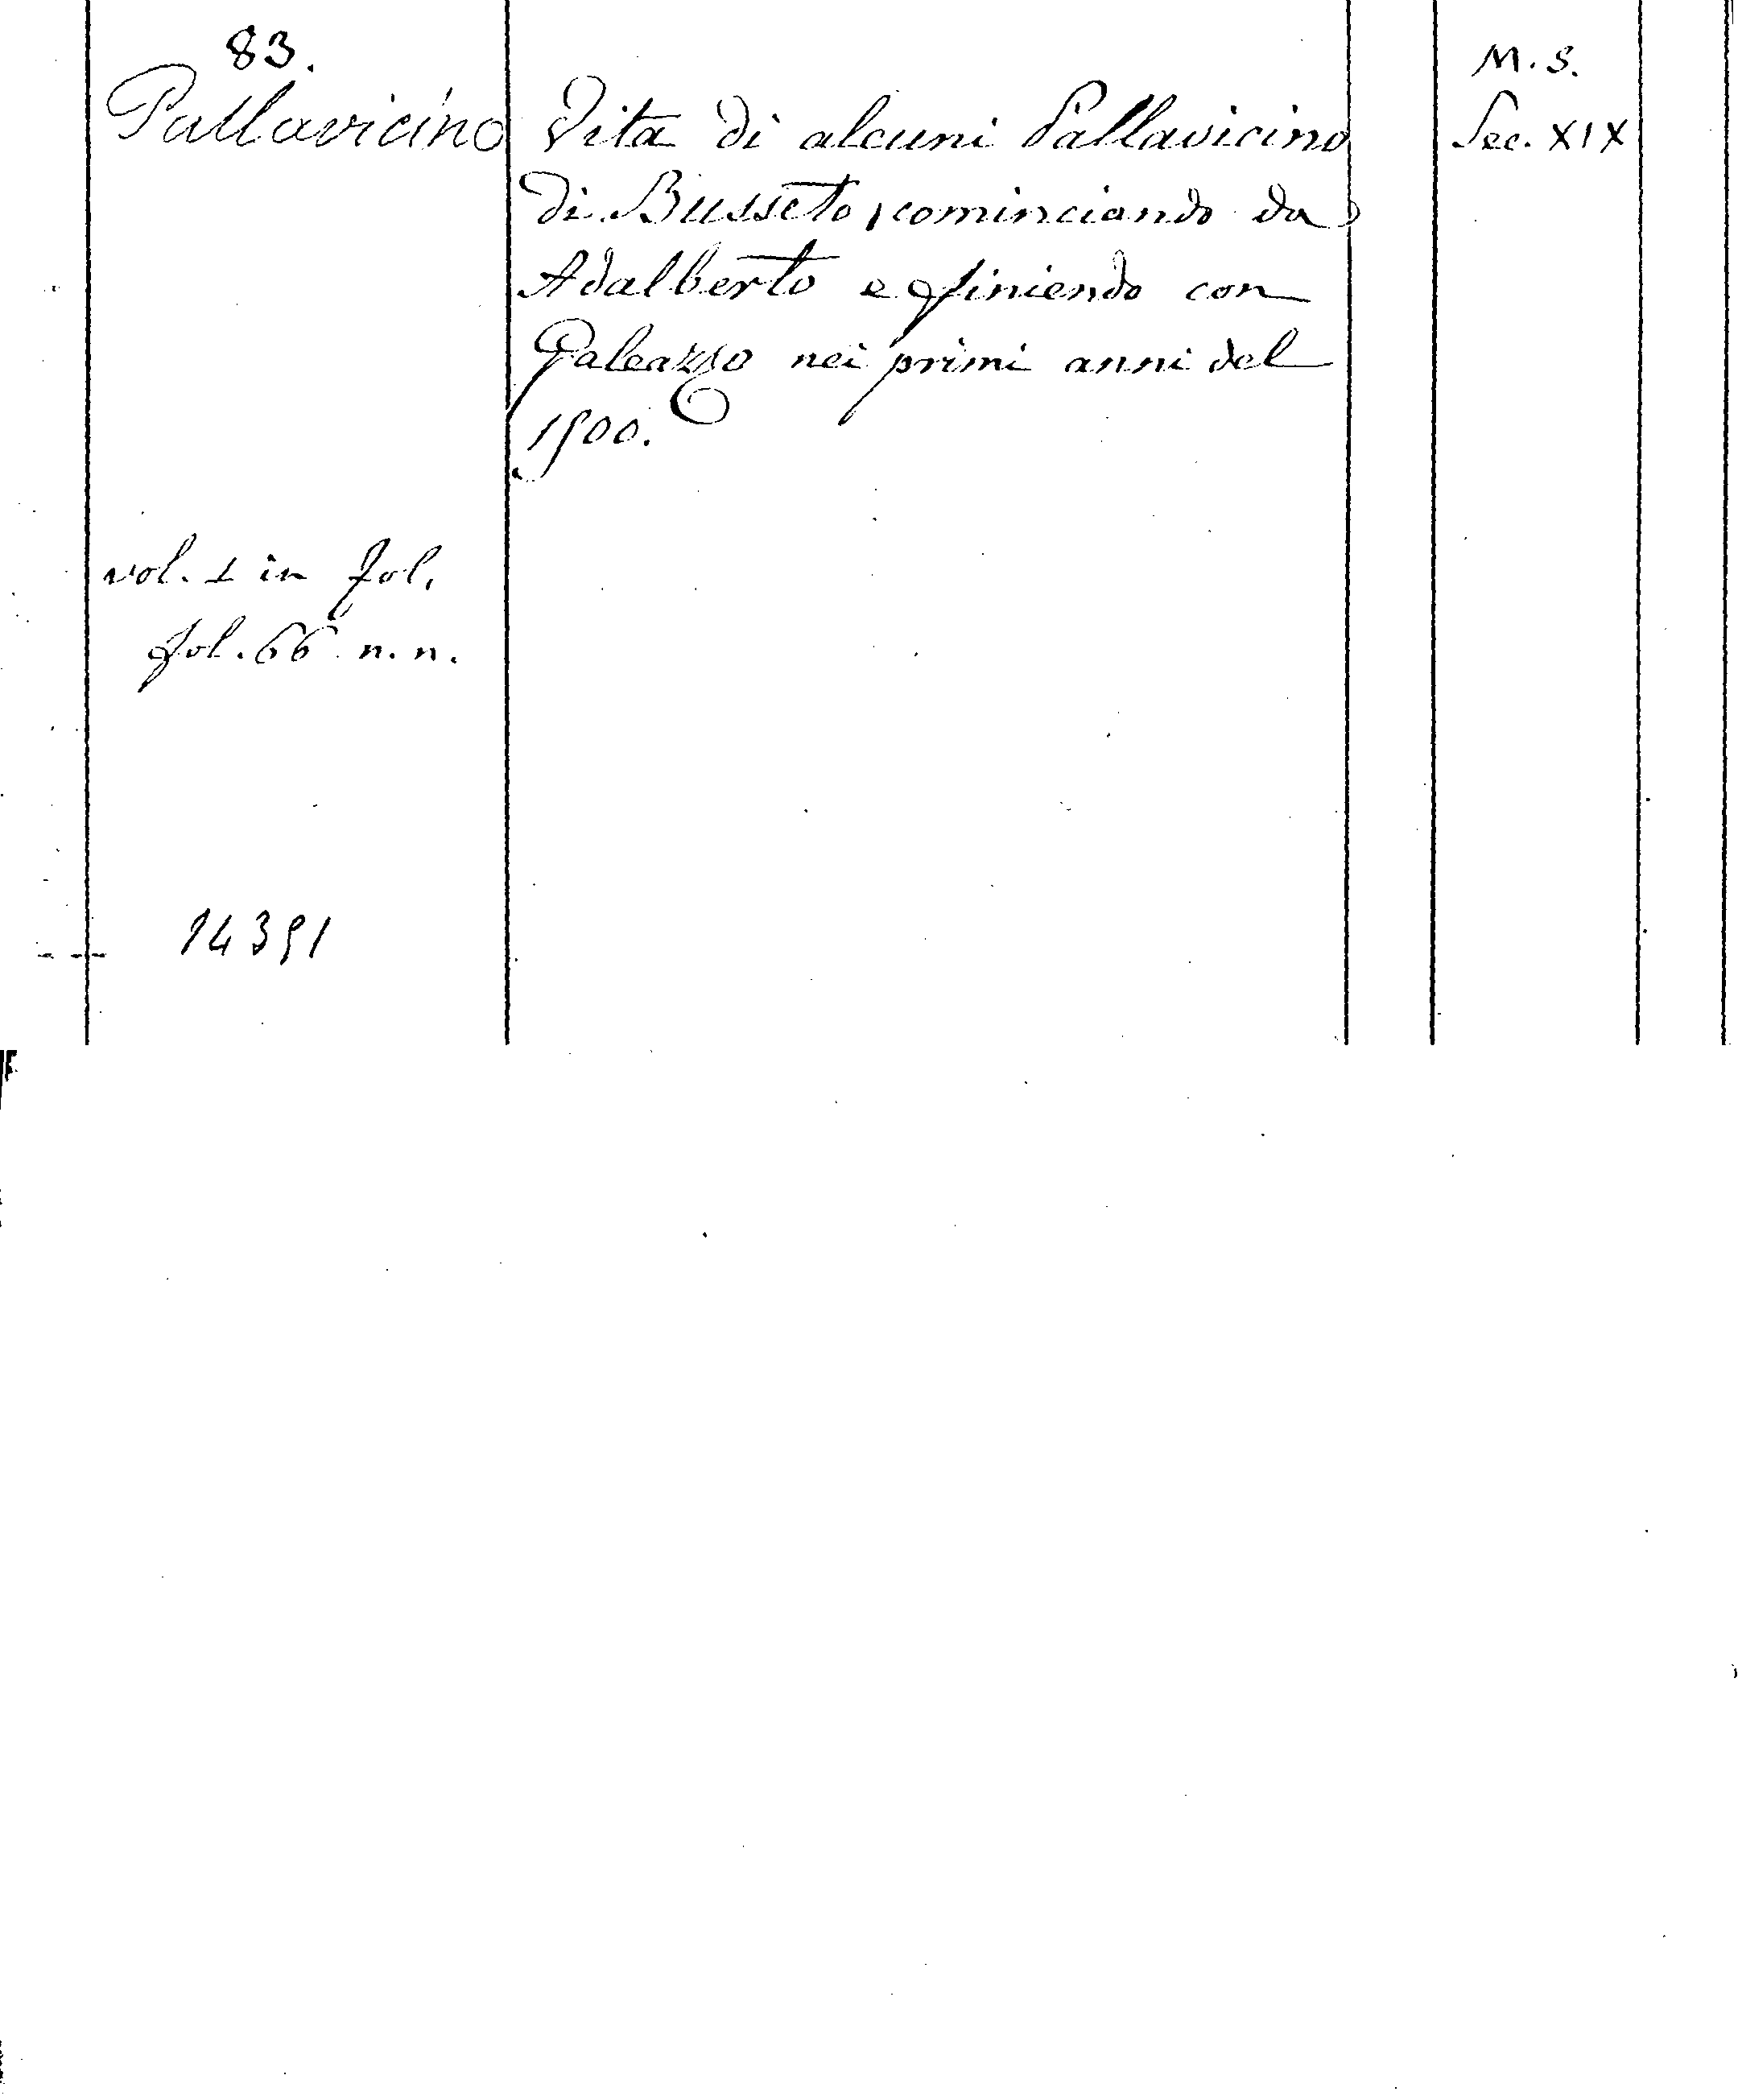 83.
Pallavicino
Vita di alcuni Pallavicino
di Busseto, cominciando da
Adalberto e finiendo con
Galeazzo nei primi anni del
1500.
M.S.
Sec. XIX
vol. 1 in fol.
fol. 66 n. n.
14391